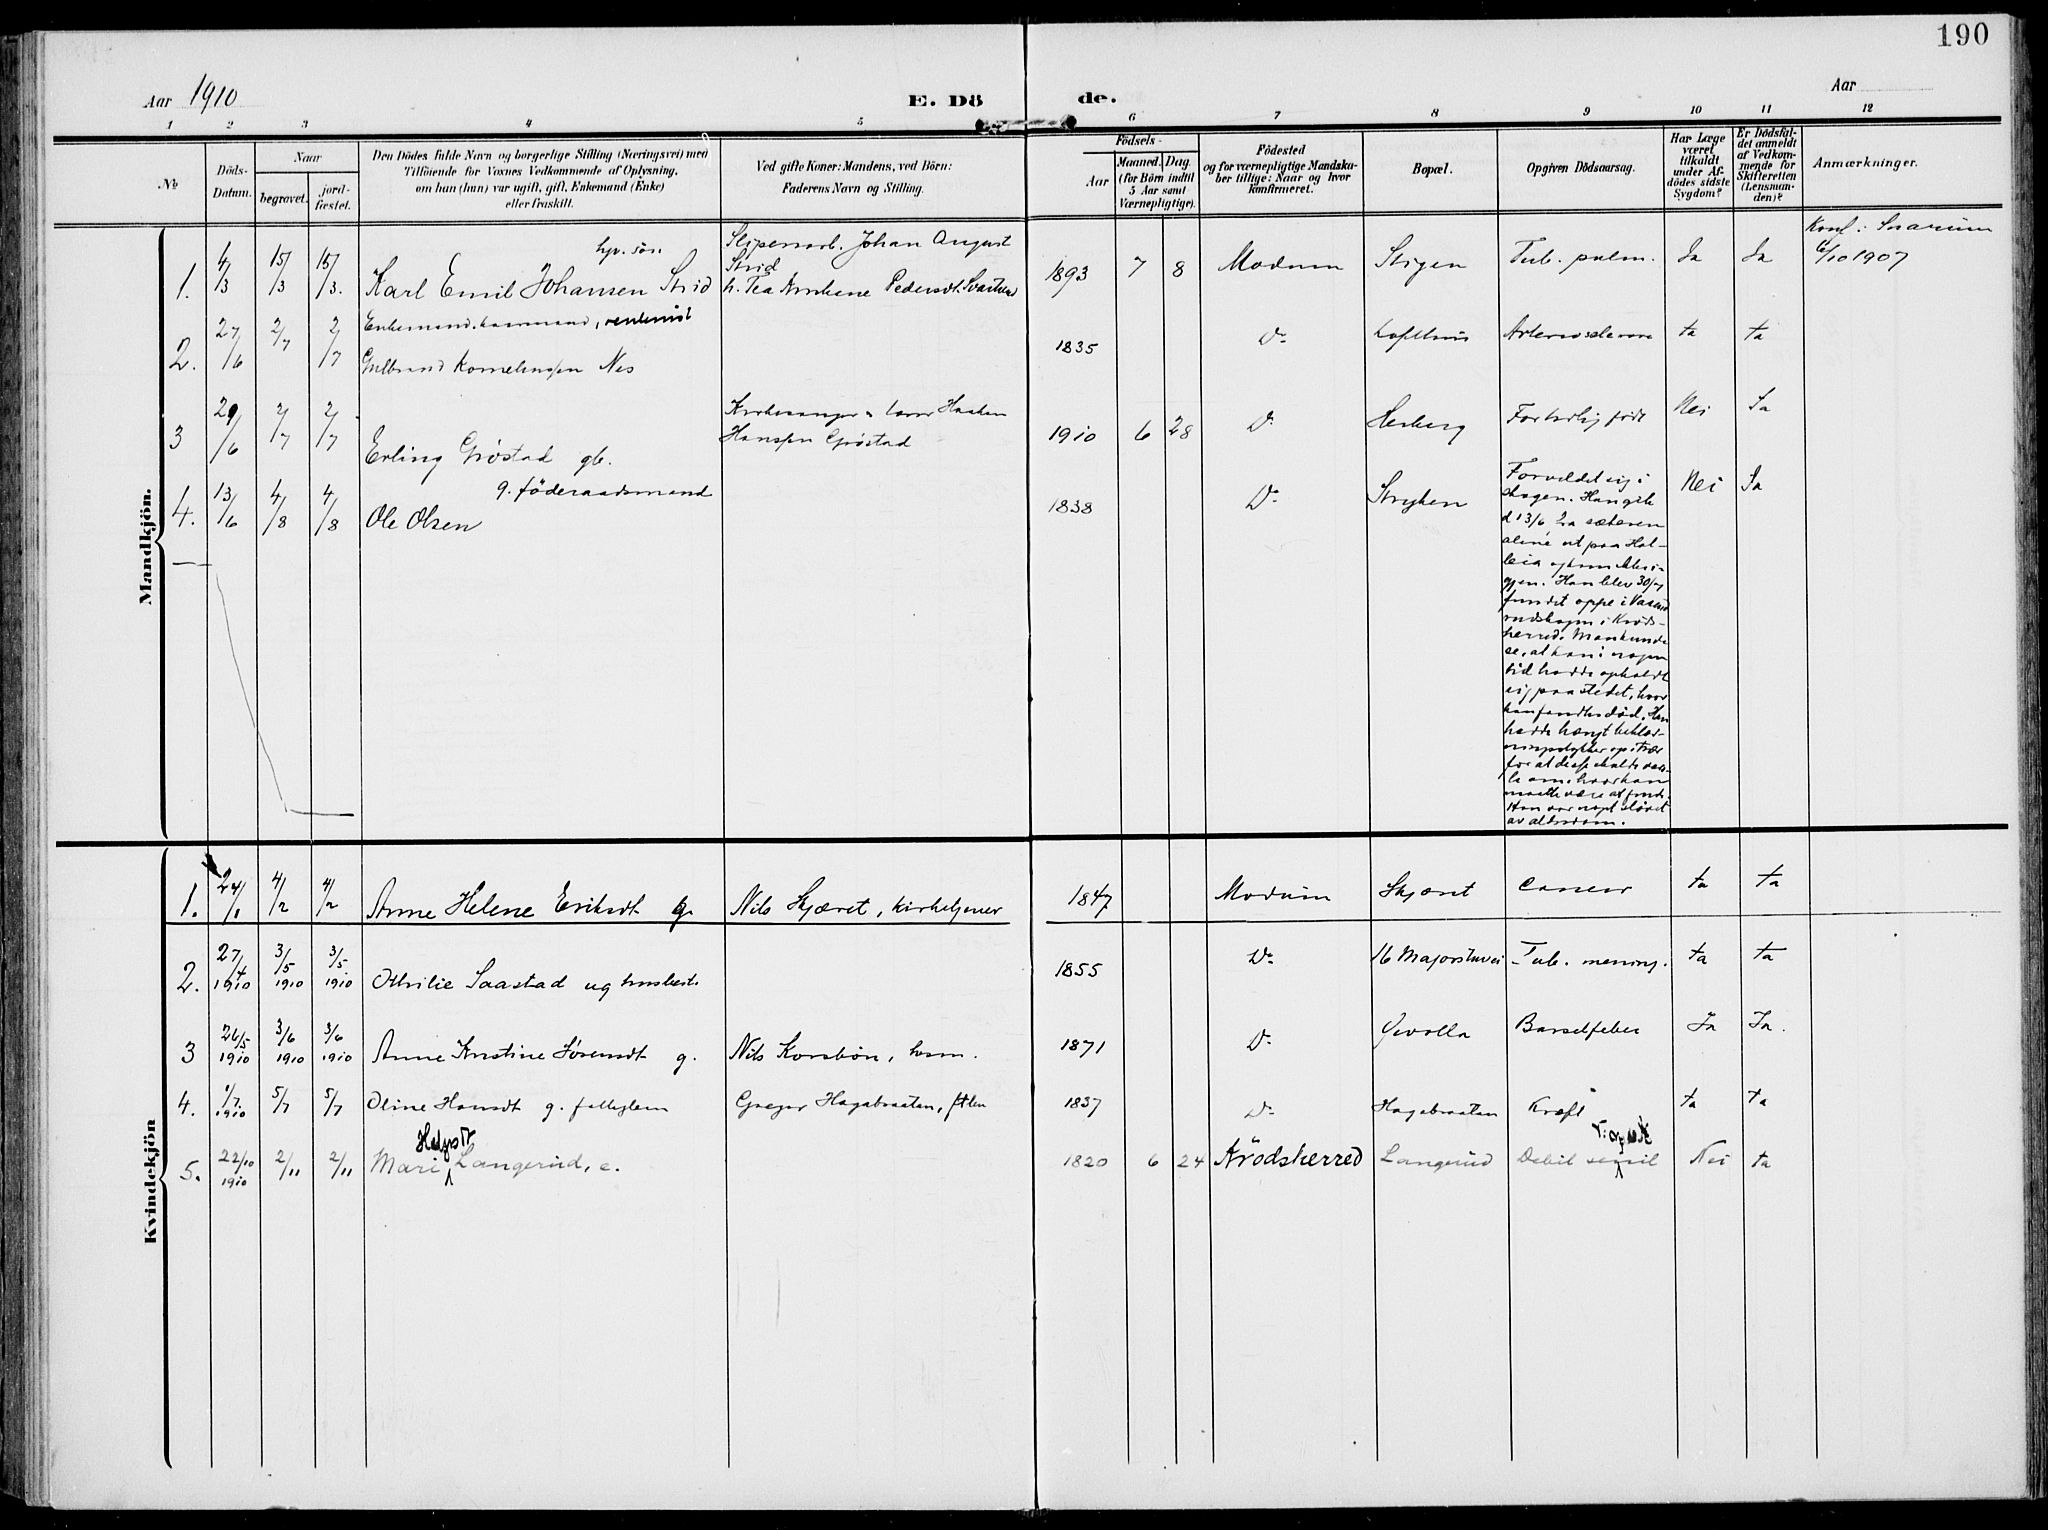 190
Aar 1910
E. Dö de.
Aar
1 2 3 4 5 6 7 8 9 10 11 12
No
Döds-Datum.
Naar
begravet.
jord-fæstet.
Den Dödes fulde Navn og borgerlige Stilling (Næringsvei) med
Tilföiende for Voxnes Vedkommende af Oplysning,
om han (hun) var ugift, gift, Enkemand (Enke)
eller fraskilt.
Ved gifte Koner: Mandens, ved Börn:
Faderens Navn og Stilling.
Födsels-
Aar
Maaned. Dag.
(for Börn indtil
5 Aar samt
Værnepligtige).
Födested
og for værnepligtige Mandska-
ber tillige: Naar og hvor
konfirmeret.
Bopæl.
Opgiven Dödsaarsag.
Har Læge
været
tilkaldt
under Af-
dödes sidste
Sygdom?
Er Dödsfal-
det anmeldt
af Vedkom-
mende for
Skifteretten
(Lensman-
den)?
Anmærkninger.
Mandkjön.
1. 4/3 15/3 15/3.
Karl Emil Johansen Strid
Slipersarb. Johan August
Strid
1893 7 8 Modum Stigen Tub. pulm. Ja Ja
Konf. i Snarum
6/10 1907
2. 27/6 2/7 2/7
Enkemand.
Gulbrand Nes
1835 Do Lofthus ja ja
3 29/6 2/7 2/7
Erling Grøstad gb.
Kirkesanger
Hansen Grøstad
1910 6 28 Do Hesberg For tidlig født Nei Ja
4. 13/6 4/8 4/8
g. föderaadsmand
Ole Olsen
1838 Do Stryken Nei Ja
Forvildet sig i
skogen. Han gik
d 13/6 fra sæteren
alene ut paa Hol-
leia og kom ikke i-
gjen. Han blev 30/7
fundet oppe i
skogen i Kröds-
herred. Man kunde
se, at han i nogen
tid hadde opholdt
sig paa stedet, hvor
han fandtes död. Han
hadde hængt beklæd-
ningsstykker op i trær
for at disse skulde
om, hvor han
maatte være at finde.
Han var noget slövet
av alderdom.
Kvindekjön
1. 24/1 4/2 4/2 Anne Helene Eriksdt g. Nils Skjæret, kirketjener
1847 Modum Skjæret Cancer ja ja
2. 27/4 1910 3/5 1910 3/5 1910 Othilie Saastad ug husbest.
1855 Do 16 Majorstuvei Tub. mening. ja ja
3 26/5 1910 3/6 1910 3/6 1910 Anne Kristine g. Nils Korsbøn,
1871 Do Barselfeber Ja Ja.
4. 1/7 1910 5/7 5/7 Oline Hansdt g. Greger Hagabraaten,
1837 Do Hagabraaten Kræft ja ja
5. 22/10 1910 2/11 2/11 Mari Langerud, e.
1820 6 24 Krödsherred Langerud Debil senil Nei ja